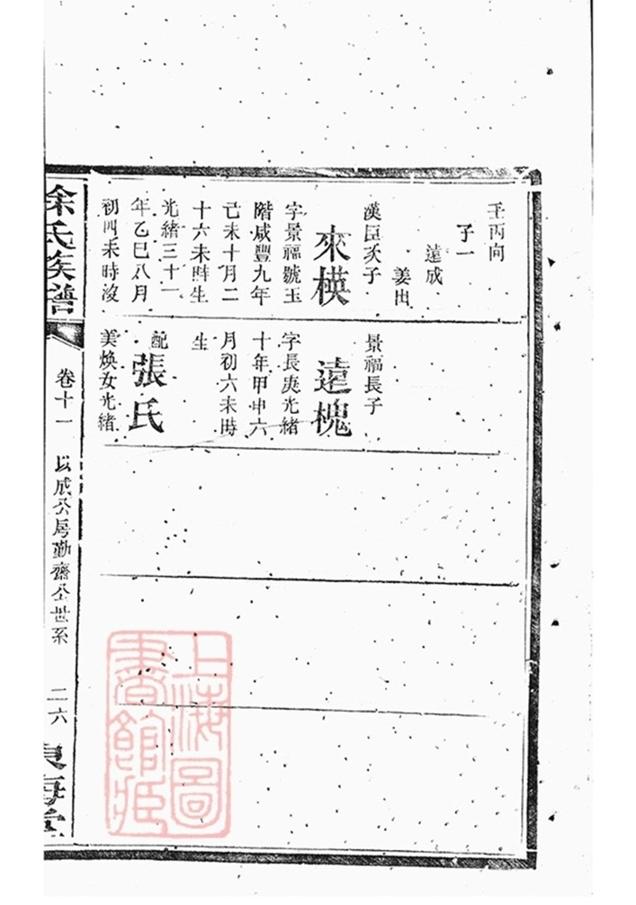 壬丙向
子一
遠成
姜出
漢臣次子
來模
字景福號玉
階咸豐九年
己未十月二
十六未時生
光緒三十一
年乙巳八月
初四未時沒
景福長子
遠槐
字長庚光緒
十年甲申六
月初六未時
生
配
張氏
美煥女光緒
徐氏族譜
卷十一
以成公房勤齋公世系
二六
東海堂
上海圖
書館藏